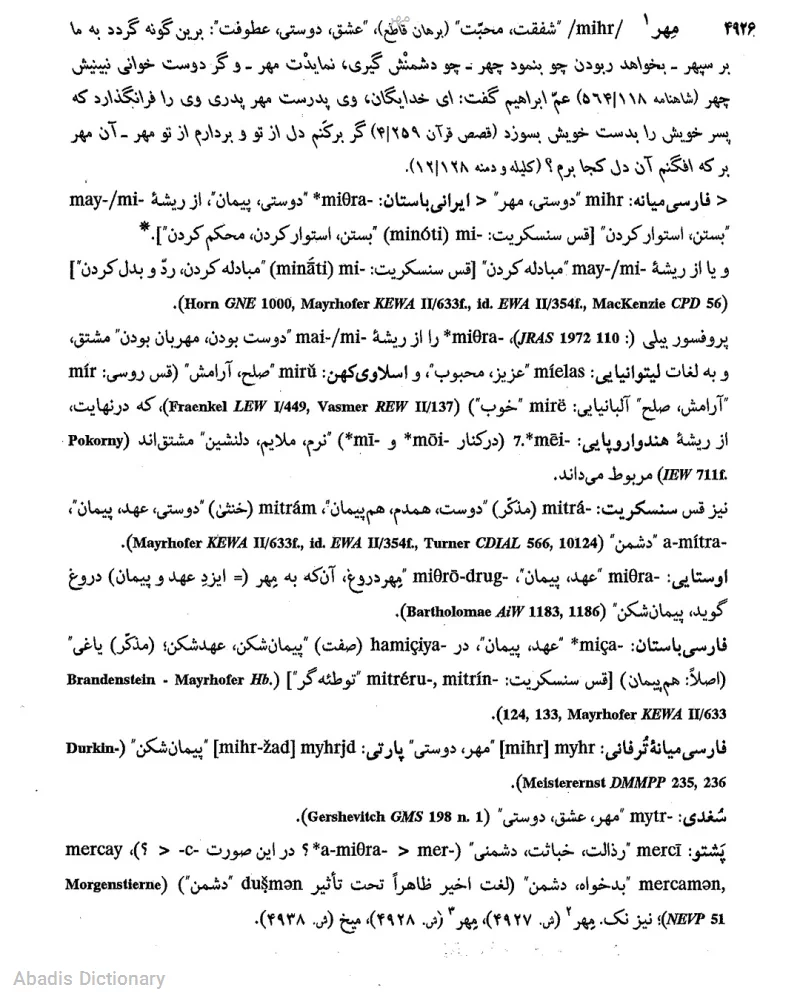 ۴۹۲۶ مِهر۱ /mihr/ "شفقت، محبّت" (برهان قاطع)، "عشق، دوستی، عطوفت": برین گونه گردد به ما
بر سپهر ـ بخواهد ربودن چو بنمود چهر ـ چو دشمنْش گیری، نمایدْت مهر ـ و گر دوست خوانی نبینیش
چهر (شاهنامه ۵۶۴/۱۱۸) عمّ ابراهیم گفت: ای خدایگان، وی پدرست مهر پدری وی را فرانگذارد که
پسر خویش را بدست خویش بسوزد (قصص قرآن ۴/۲۵۹) گر برکَنم دل از تو و بردارم از تو مهر ـ آن مهر
بر که افگنم آن دل کجا برم؟ (کلیله و دمنه ۱۲/۱۲۸).
< فارسی میانه: mihr "دوستی، مهر" < ایرانی باستان: -miθra* "دوستی، پیمان"، از ریشهٔ -may-/mi
"بستن، استوار کردن" [قس سنسکریت: -mi (minóti) "بستن، استوار کردن، محکم کردن"].*
و یا از ریشهٔ -may-/mi "مبادله کردن" [قس سنسکریت: -mi (mināti) "مبادله کردن، ردّ و بدل کردن"]
(Horn GNE 1000, Mayrhofer KEWA II/633f., id. EWA II/354f., MacKenzie CPD 56).
پروفسور بیلی (JRAS 1972 110 :)، -miθra* را از ریشهٔ -mai-/mi "دوست بودن، مهربان بودن" مشتق،
و به لغات لیتوانیایی: míelas "عزیز، محبوب"، و اسلاوی کهن: mirŭ "صلح، آرامش" (قس روسی: mír
"آرامش، صلح" آلبانیایی: mirë "خوب") (Fraenkel LEW I/449, Vasmer REW II/137)، که در نهایت،
از ریشهٔ هندواروپایی: -mēi*.7 (درکنار -mōi* و -mī*) "نرم، ملایم، دلنشین" مشتق‌اند (Pokorny
IEW 711f.) مربوط می‌داند.
نیز قس سنسکریت: -mitrá (مذکّر) "دوست، همدم، هم‌پیمان"، mitrám (خنثیٰ) "دوستی، عهد، پیمان"،
-a-mítra "دشمن" (Mayrhofer KEWA II/633f., id. EWA II/354f., Turner CDIAL 566, 10124).
اوستایی: -miθra "عهد، پیمان"، -miθrō-drug "مِهردروغ، آن‌که به مِهر (= ایزدِ عهد و پیمان) دروغ
گوید، پیمان‌شکن" (Bartholomae AiW 1183, 1186).
فارسی باستان: -miça* "عهد، پیمان"، در -hamiçiya (صفت) "پیمان‌شکن، عهدشکن؛ (مذکّر) یاغی"
(اصلاً: هم‌پیمان) [قس سنسکریت: -mitréru-, mitrín "توطئه‌گر"] (Brandenstein - Mayrhofer Hb.
124, 133, Mayrhofer KEWA II/633).
فارسی میانهٔ تُرفانی: myhr [mihr] "مهر، دوستی" پارتی: myhrjd [mihr-žad] "پیمان‌شکن" (Durkin-
Meisterernst DMMPP 235, 236).
سُغدی: -mytr "مهر، عشق، دوستی" (Gershevitch GMS 198 n. 1).
پَشتو: mercī "رذالت، خباثت، دشمنی" (-mer < -a-miθra*؟ در این صورت -c- < ؟)، mercay
mercamən, "بدخواه، دشمن" (لغت اخیر ظاهراً تحت تأثیر duṣ̌mən "دشمن") (Morgenstierne
NEVP 51)؛ نیز نک. مِهر۲ (ش. ۴۹۲۷)، مِهر۳ (ش. ۴۹۲۸)، میخ (ش. ۴۹۳۸).
Abadis Dictionary